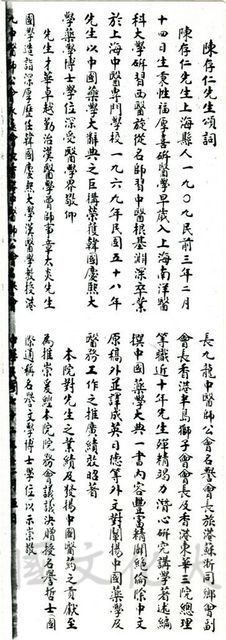 陳存仁先生頌詞
陳存仁先生上海縣人一九〇九民前三年二月
十四日生秉性福厚喜研醫學早歲入上海南洋醫
科大學研習西醫旋從名師習中醫根基湛深卒業
於上海中醫專門學校一九六九年民國五十八年
先生以中國藥學大辭典之巨構榮獲韓國慶熙大
學藥學博士學位深受醫學界敬仰
先生才華卓越勤治漢醫學曾師事章太炎先生
國學造詣深厚歷任韓國慶熙大學漢醫學教授港
長九龍中醫師公會名譽會長旅港蘇浙同鄉會副
會長香港半島獅子會會長及香港東華三院總理
等職近十年先生殫精竭力潛心研究講學著述編
撰中國藥學大典一書內容豐富精闢絕倫除中文
原稿外並譯成英日德等外文對闡揚中國藥學及
醫務工作之推廣績效昭著
本院對先生之業績及發揚中國醫藥之貢獻至
為推崇爰經本院院務會議議決贈授名譽哲士國
際通稱名譽文學博士學位以示崇敬